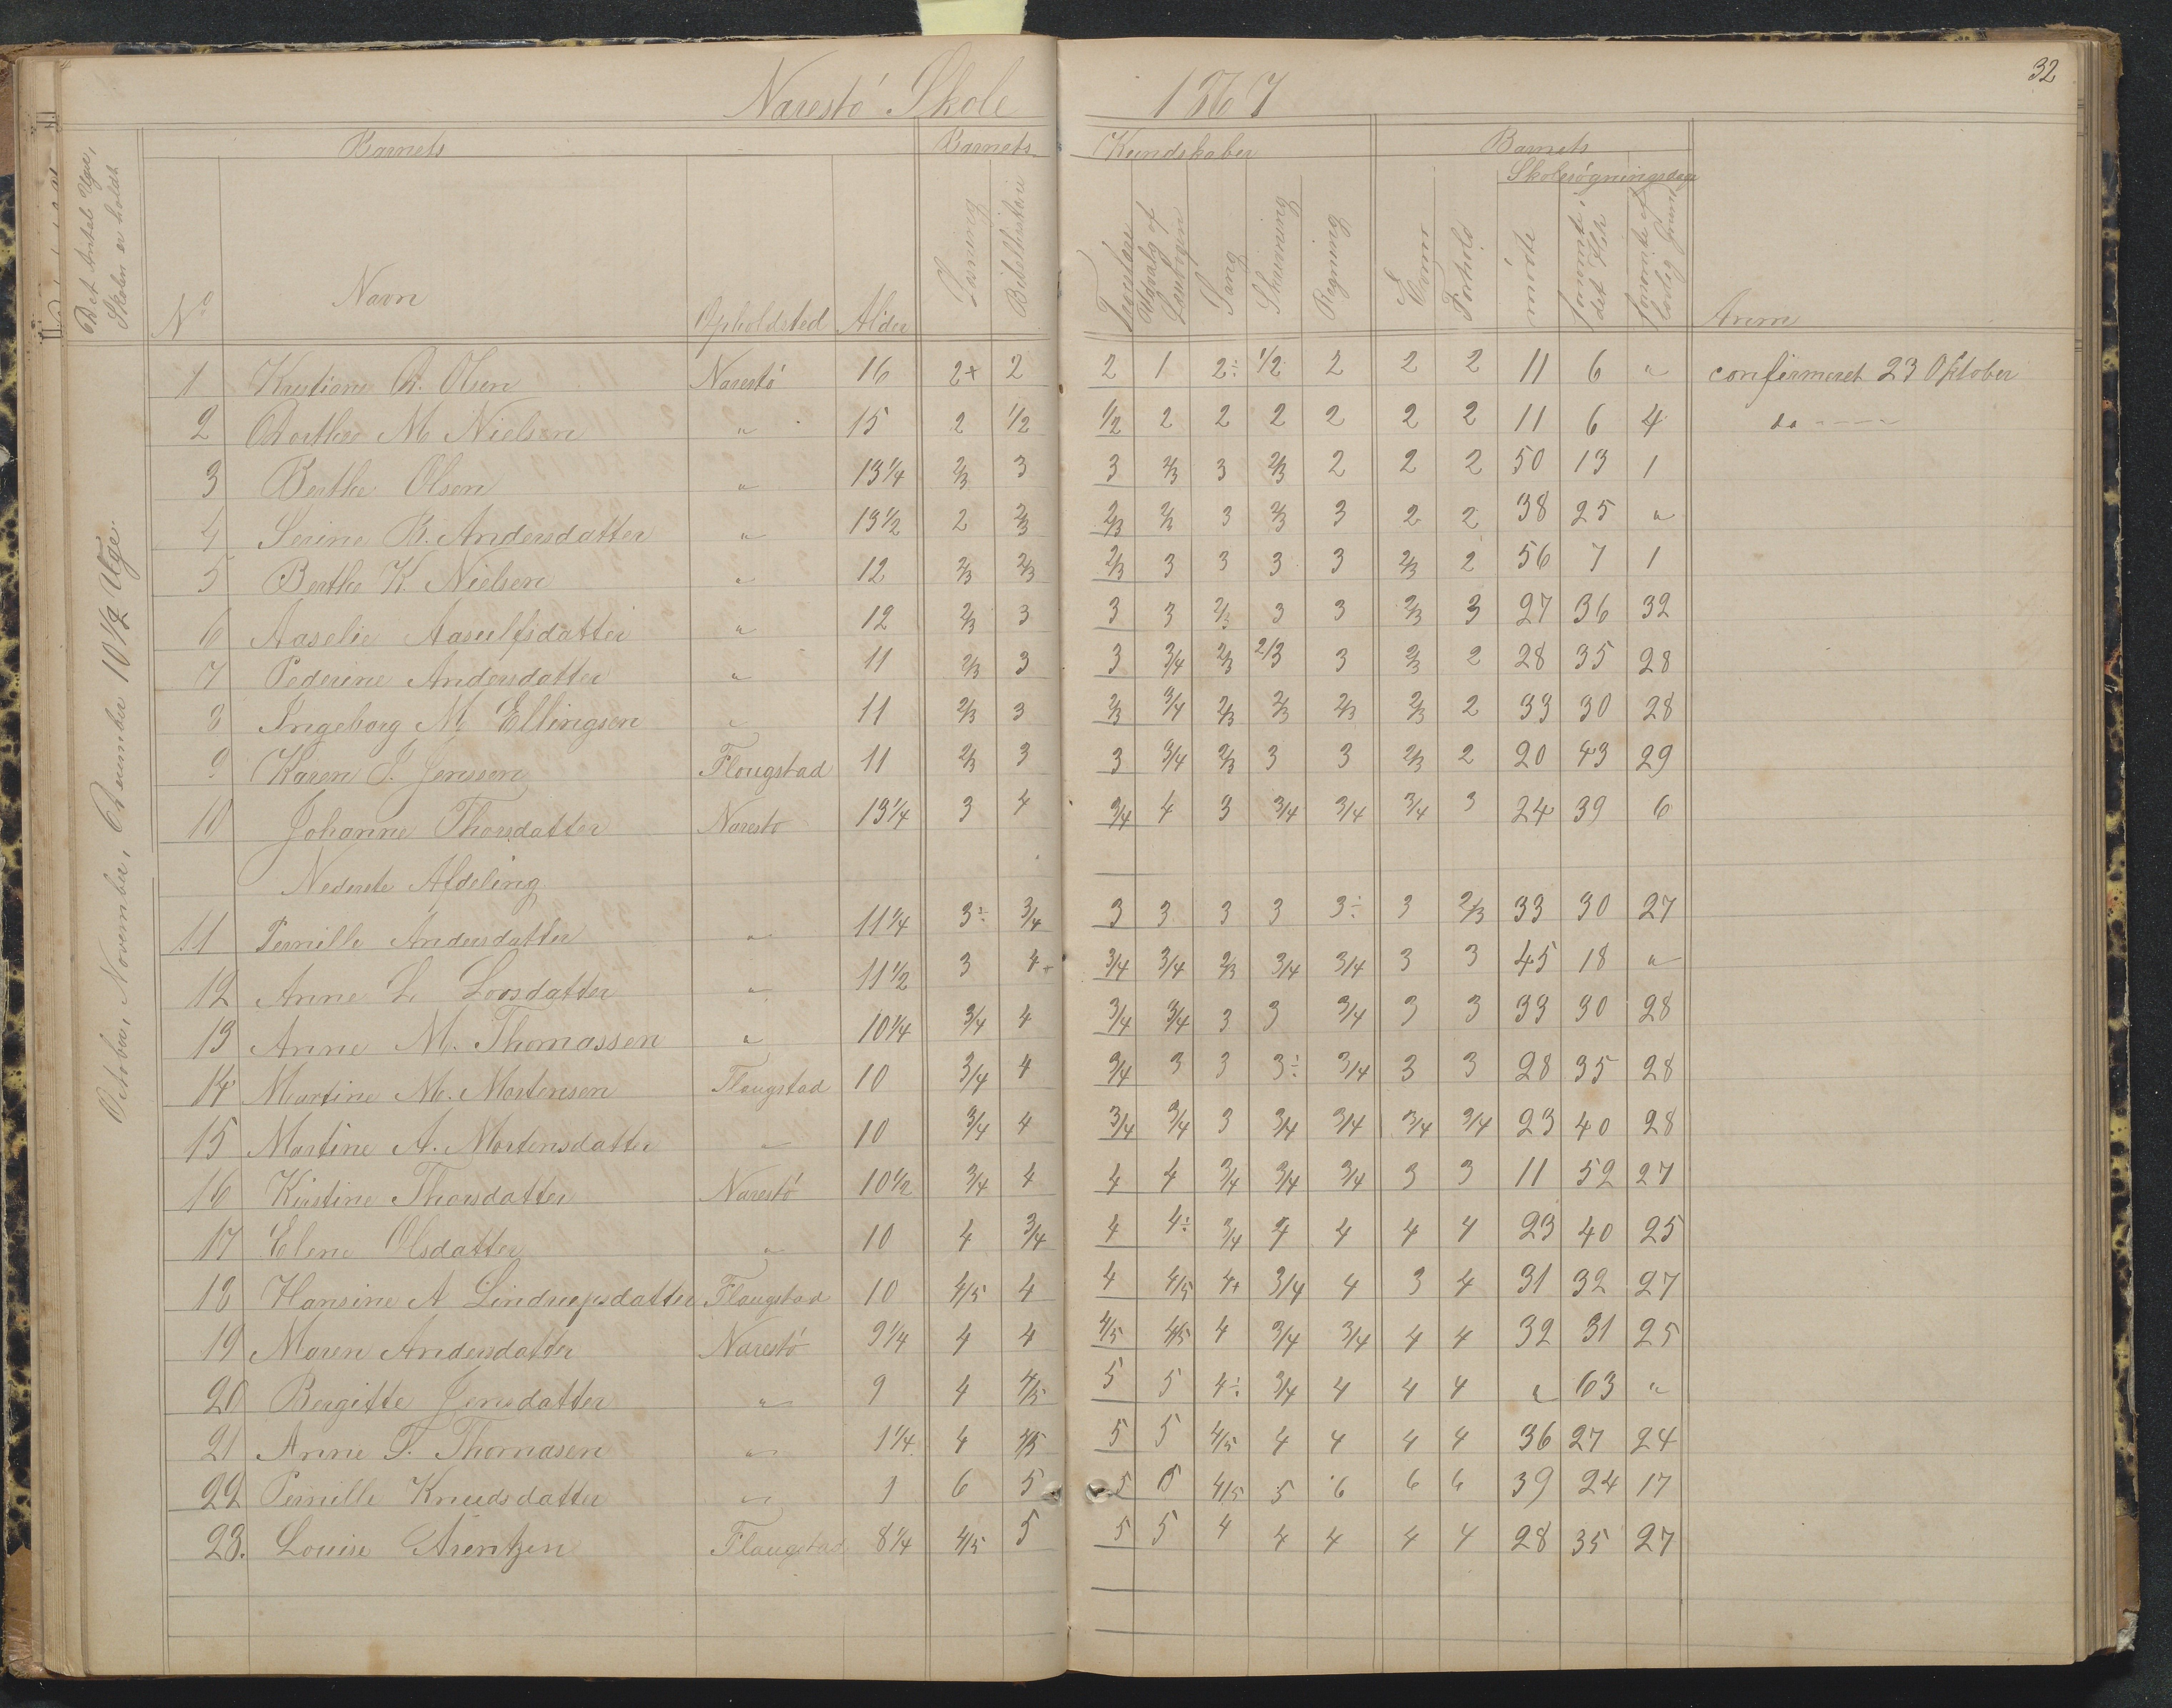 32
Narestö Skole 1867
Barnets Barnets Kundskaber Barnets
Skolesøgningsdage
Det Antal Uger, Skolen er holdt
No Navn Opholdsted Alder Læsning Bibelhistorie Troeslære Udvalg af Læsebogen Sang Skrivning Regning Evner Forhold mödte forsömte i det Hele forsömte af lovlig Grund Anm
October, November, December 10 1/2 Uge
1 Kristiane A. Olsen Narestö 16 2+ 2 2 1 2÷ 1/2 2 2 2 11 6 " confirmeret 23 Oktober
2 Dorthe M Nielsen " 15 2 1/2 1/2 2 2 2 2 2 2 11 6 4 do ----
3 Berthe Olsen " 13 1/4 2/3 3 3 2/3 3 2/3 2 2 2 50 13 1
4 Serine B. Andersdatter " 13 1/2 2 2/3 2/3 2/3 3 2/3 3 2 2 38 25 "
5 Berthe K. Nielsen " 12 2/3 2/3 2/3 3 3 3 3 2/3 2 56 7 1
6 Aaselie Aasulfsdatter " 12 2/3 3 3 3 2/3 3 3 2/3 3 27 36 32
7 Pederine Andersdatter " 11 2/3 3 3 3/4 2/3 2/3 3 2/3 2 28 35 28
8 Ingeborg M. Ellingsen " 11 2/3 3 2/3 3/4 2/3 2/3 2/3 2/3 2 33 30 28
9 Karen J. Jenssen Flougstad 11 2/3 3 3 3/4 2/3 3 3 2/3 2 20 43 29
10 Johanne Thorsdatter Narestö 13 1/4 3 4 3/4 4 3 3/4 3/4 3/4 3 24 39 6
Nederste Afdeling
11 Pernille Andersdatter " 11 1/4 3÷ 3/4 3 3 3 3 3÷ 3 2/3 33 30 27
12 Anne L Loosdatter " 11 1/2 3 4+ 3/4 3/4 2/3 3/4 3/4 3 3 45 18 "
13 Anne M. Thomassen " 10 1/4 3/4 4 3/4 3/4 3 3 3/4 3 3 33 30 28
14 Martine M. Mortensen Flougstad 10 3/4 4 3/4 3 3 3÷ 3/4 3 3 28 35 28
15 Martine A. Mortensdatter " 10 3/4 4 3/4 3/4 3 3/4 3/4 3/4 3/4 23 40 28
16 Kirstine Thorsdatter Narestö 10 1/2 3/4 4 4 4 3/4 3/4 3/4 3 3 11 52 27
17 Elene Olsdatter " 10 4 3/4 4 4÷ 3/4 4 4 4 4 23 40 25
18 Hansine A Flougstad 10 4/5 4 4 4/5 4+ 3/4 4 3 4 31 32 27
19 Maren Andersdatter Narestö 9 1/4 4 4 4/5 4/5 4 3/4 3/4 4 4 32 31 25
20 Bergitte Jensdatter " 9 4 4/5 5 5 4÷ 3/4 4 4 4 " 63 "
21 Anne F. Thomasen " 4 4/5 5 5 4/5 4 4 4 4 36 27 24
22 Pernille Knudsdatter " 9 6 5 5 5 4/5 5 6 6 6 39 24 17
23. Louise Arentzen Flougstad 8 1/4 4/5 5 5 5 4 4 4 4 4 28 35 27